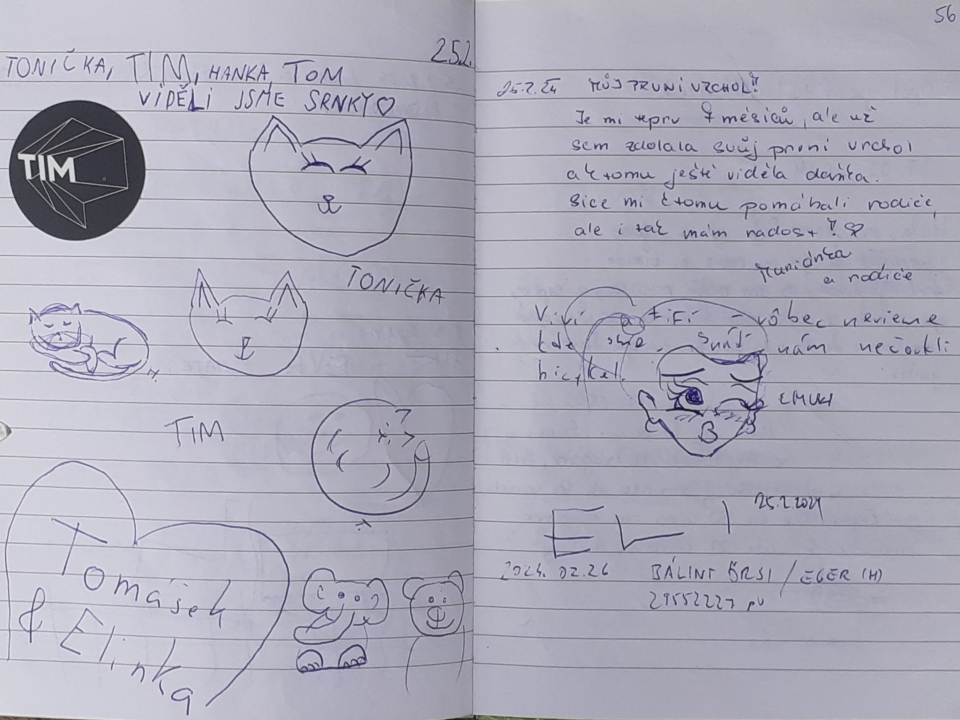 25.2.
TONIČKA, TIM, HANKA, TOM
VIDĚLI JSME SRNKY♡
TIM
TONIČKA
TIM
Tomášek
& Elinka
56
25.2.24 MŮJ PRVNÍ VRCHOL!
Je mi teprv 7 měsíců, ale už
sem zdolala svůj první vrchol
a k tomu ještě viděla daňka.
Sice mi k tomu pomáhali rodiče,
ale i tak mám radost!
a rodiče
Vivi a Fifi - vôbec nevieme
kde sme. Snáď nám nečokli
bicykel.
ELI 25.2.2024
2024. 02.26 BÁLINT ÖRSI / EGER (H)